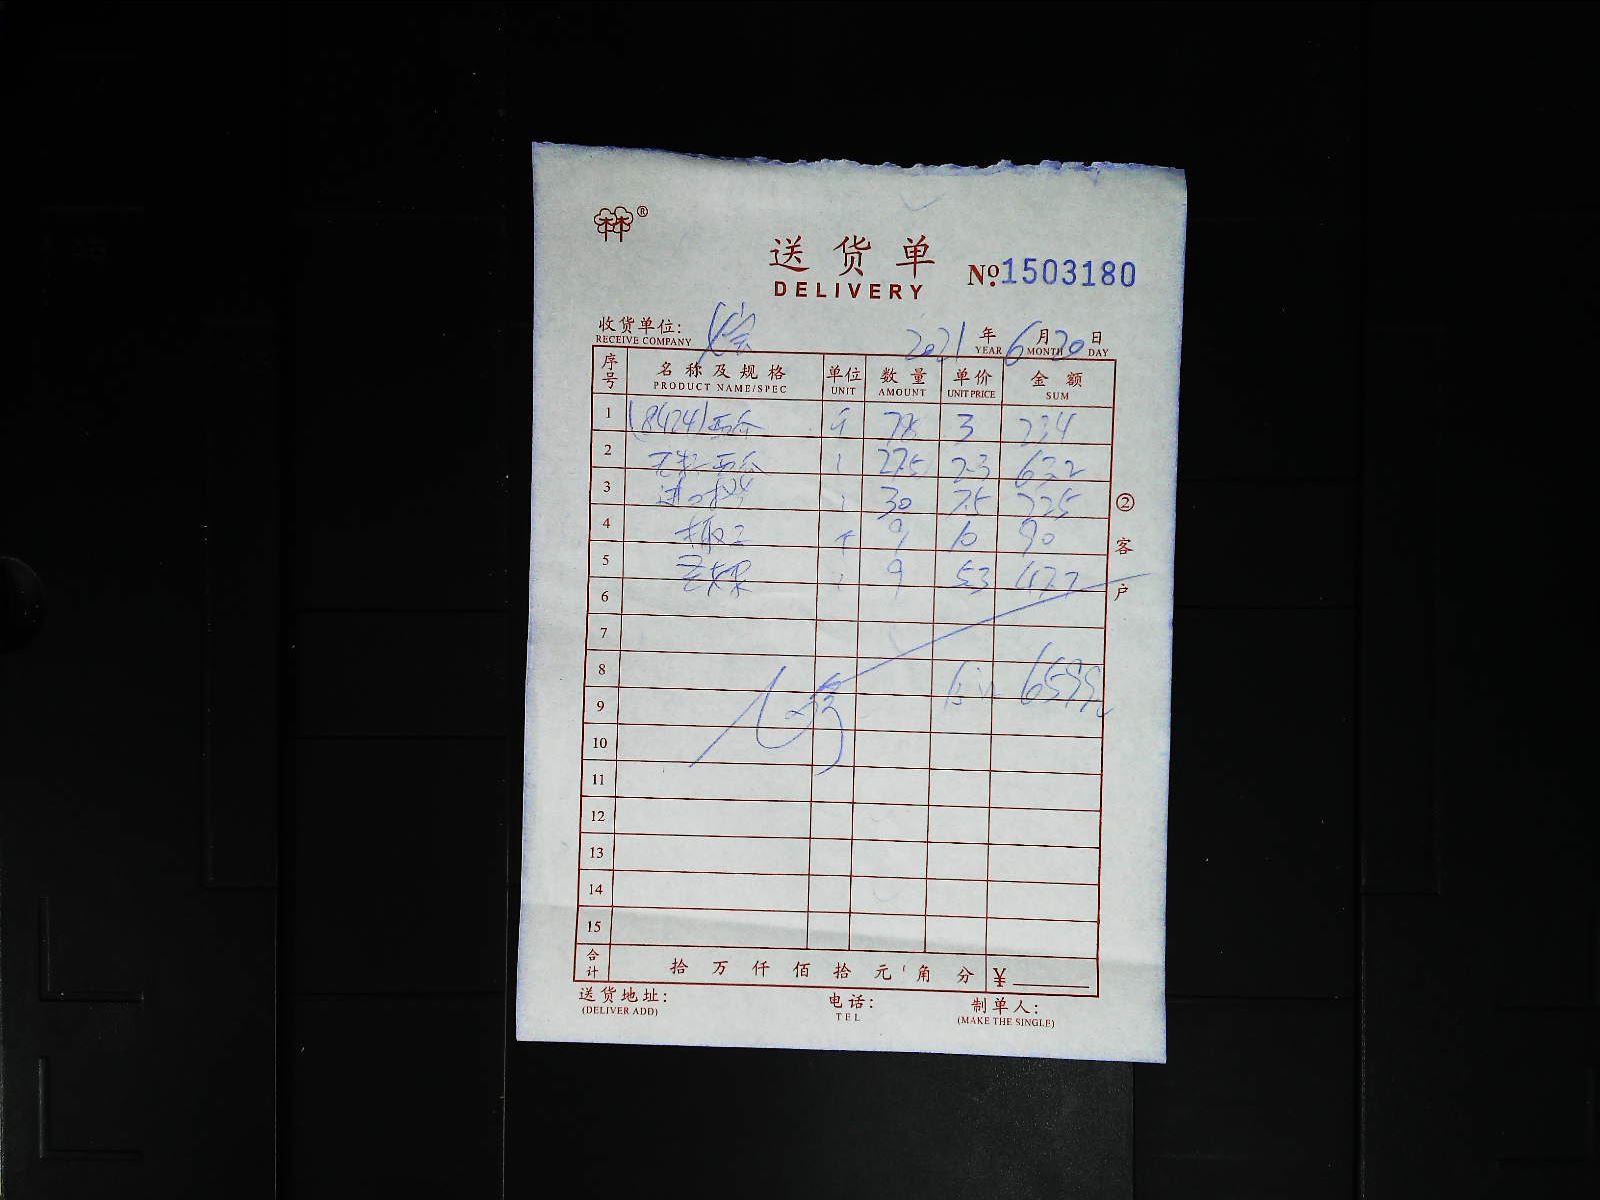 ®
送货单
DELIVERY
№1503180
收货单位: 2021 年 6 月 20 日
RECEIVE COMPANY YEAR MONTH DAY
序号 名称及规格 单位 数量 单价 金额
PRODUCT NAME/SPEC UNIT AMOUNT UNIT PRICE SUM
1 (8424)西瓜 斤 78 3 234
2 无籽西瓜 275 2.3 632
3 进口 30 7.5 225
4 9 10 90
5 9 53 477
6
7
8 合计 6599
9
10
11
12
13
14
15
合计 拾 万 仟 佰 拾 元 角 分 ¥
②客户
送货地址: 电话: 制单人:
(DELIVER ADD) TEL (MAKE THE SINGLE)